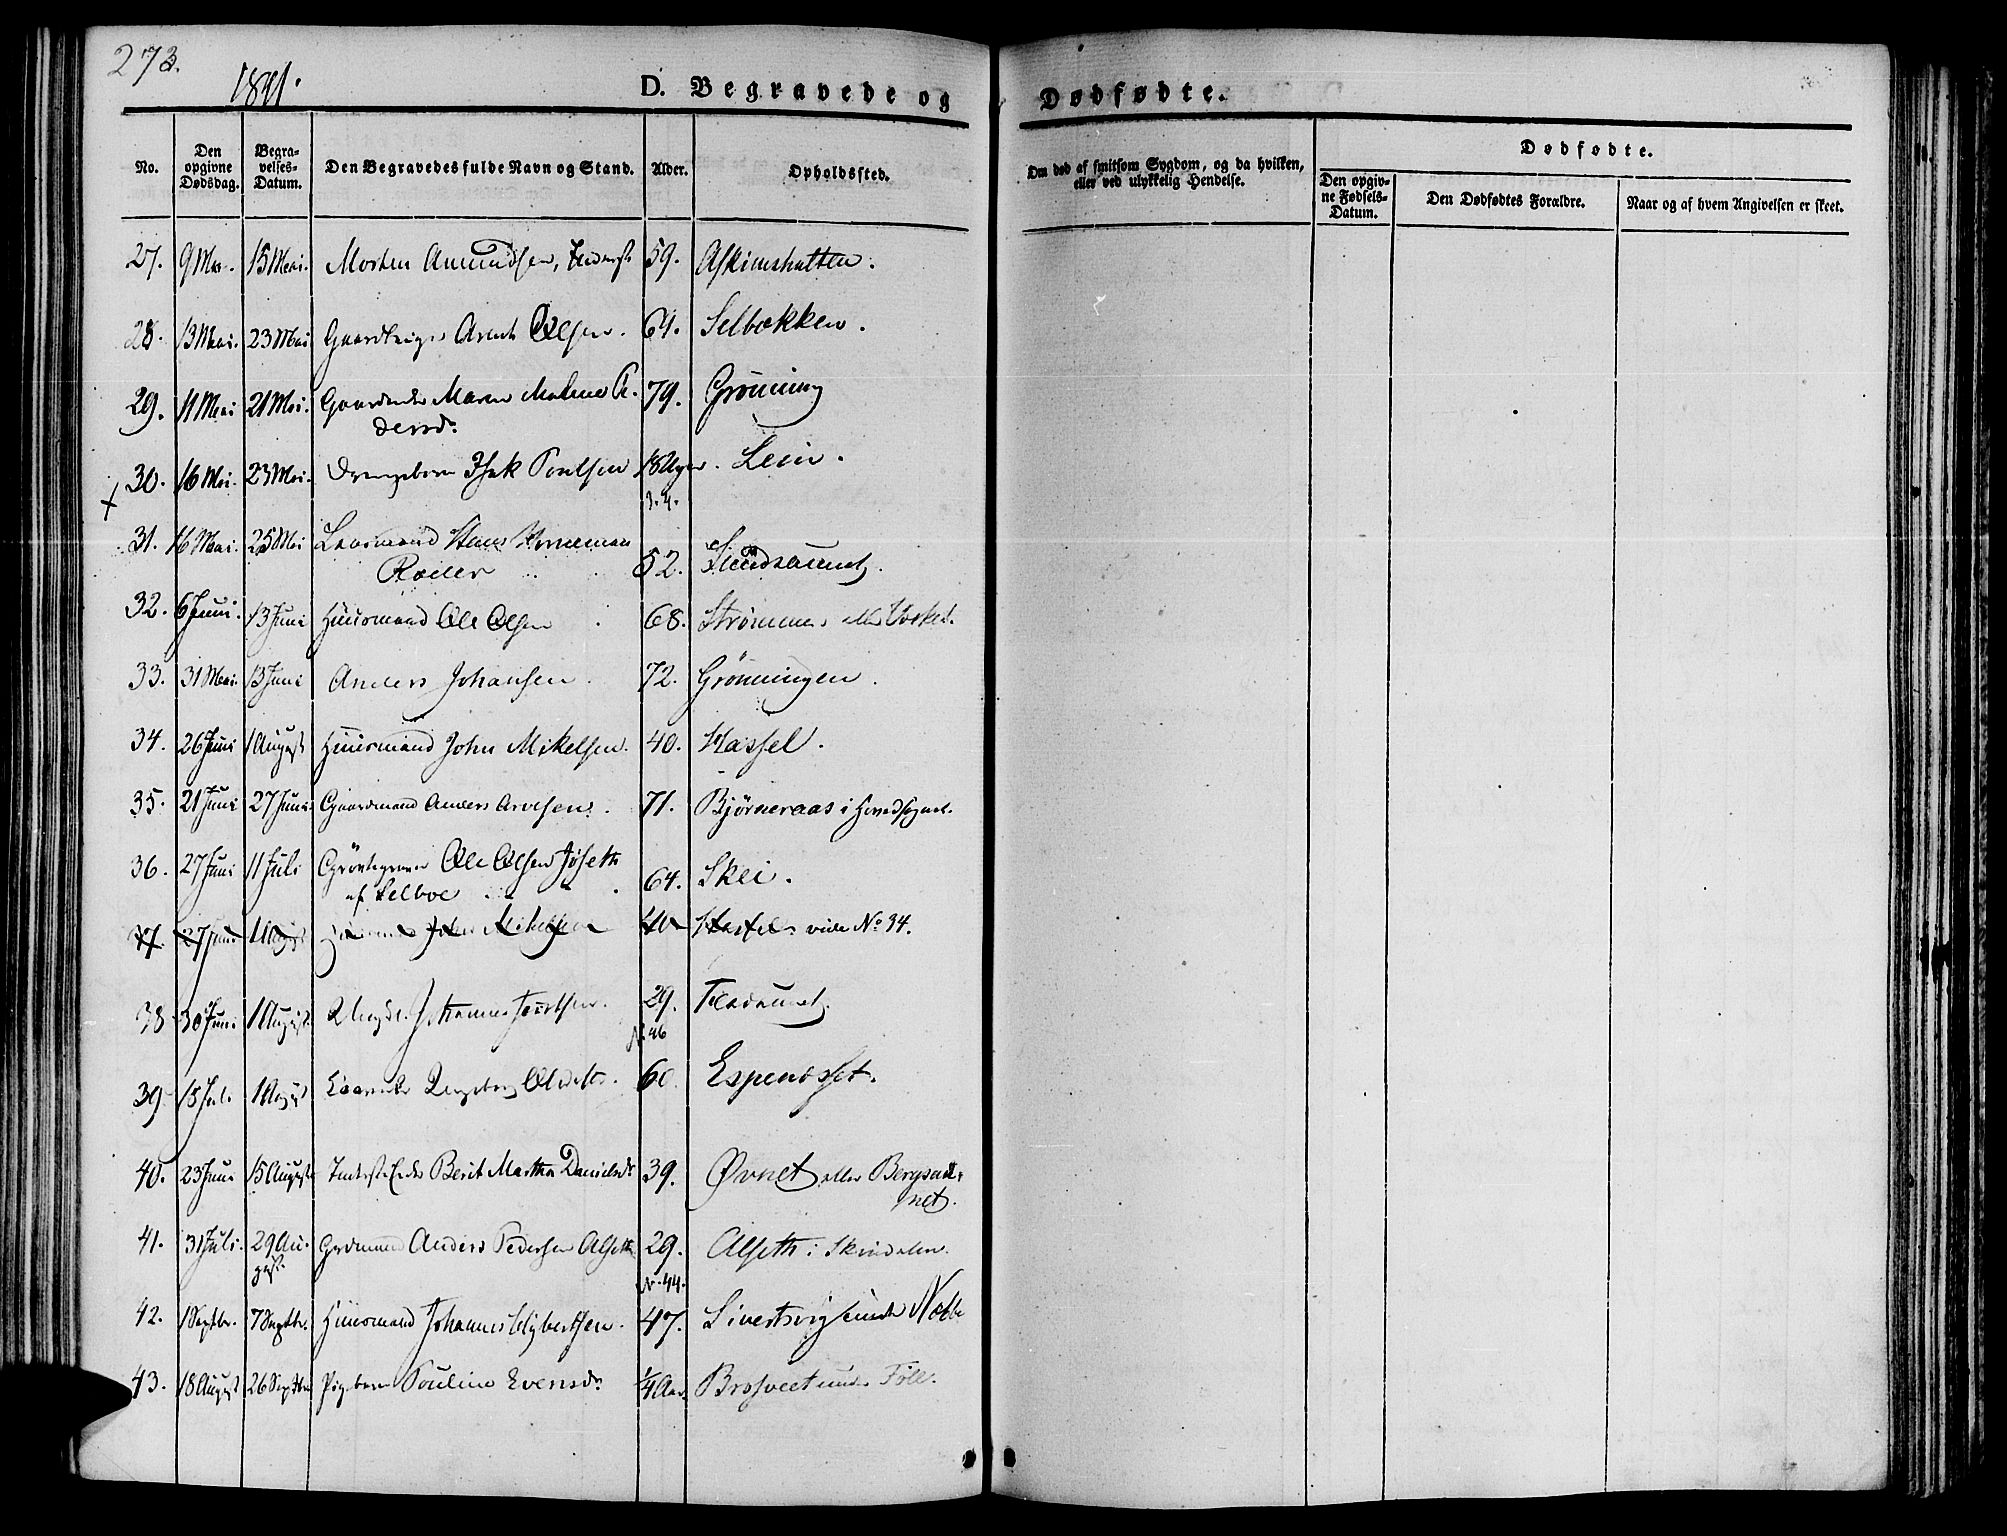 273.
1841.
D. Begravede og Dødfødte.
No. Den opgivne Dødsdag. Begravelses-Datum. Den Begravedes fulde Navn og Stand. Alder. Opholdssted. Om død af smitsom Sygdom, og da hvilken, eller ved ulykkelig Hendelse. Dødfødte. Den opgivne Fødsels-Datum. Den Dødfødtes Forældre. Naar og af hvem Angivelsen er skeet.
27. 9 Mai. 15 Mai. Morten Amundsen, Inderst 59. Askimshatten.
28. 13 Mai. 23 Mai Arent Olsen. 64. Selbækken.
29. 11 Mai 21 Mai. Maren Malene A- 79. Grönning
dersd.
30. 16 Mai. 23 Mai. Drengebarn Isak Poulsen 18 Uger. Lein.
31. 16 Mai. 25 Mai Hans Horneman
Roeler 52.
32. 6 Juni. 13 Juni Huusmand Ole Olsen 68. eller
33. 31 Mai. 13 Juni Anders Johansen. 72. Grönningen.
34. 26 Juni 1 August Huusmand John Mikelsen. 40. Hassel.
35. 21 Juni 27 Juni Gaardmand Anders Arvesen. 71. Bjørneraas i Hovedsognet.
36. 27 Juni 11 Juli Ole Olsen Jøseth
af Selboe 64. Skei.
37. 27 Juni 1 August John Mikelsen 40 Hassel vide No 34.
38 30 Juni 1 August. Johannes 29.
N. 46
39 15 Juli 1 August Ingeborg Olsdtr. 60. Espensset.
40. 23 Juni 15 August Berit Martha Danielsdr 39. Øvnet eller Bergsau-
net.
41. 31 Juli. 29 Au- Anders Pedersen Alseth 29. Alseth i Skindalen.
gust.
N. 44.
42. 1 Septbr. 7 Septbr. Huusmand Johannes 47. Sivertsvig under
43. 18 August 26 Septbr Pigebarn Pouline Evensdr 1/4 Aar. under Föll.